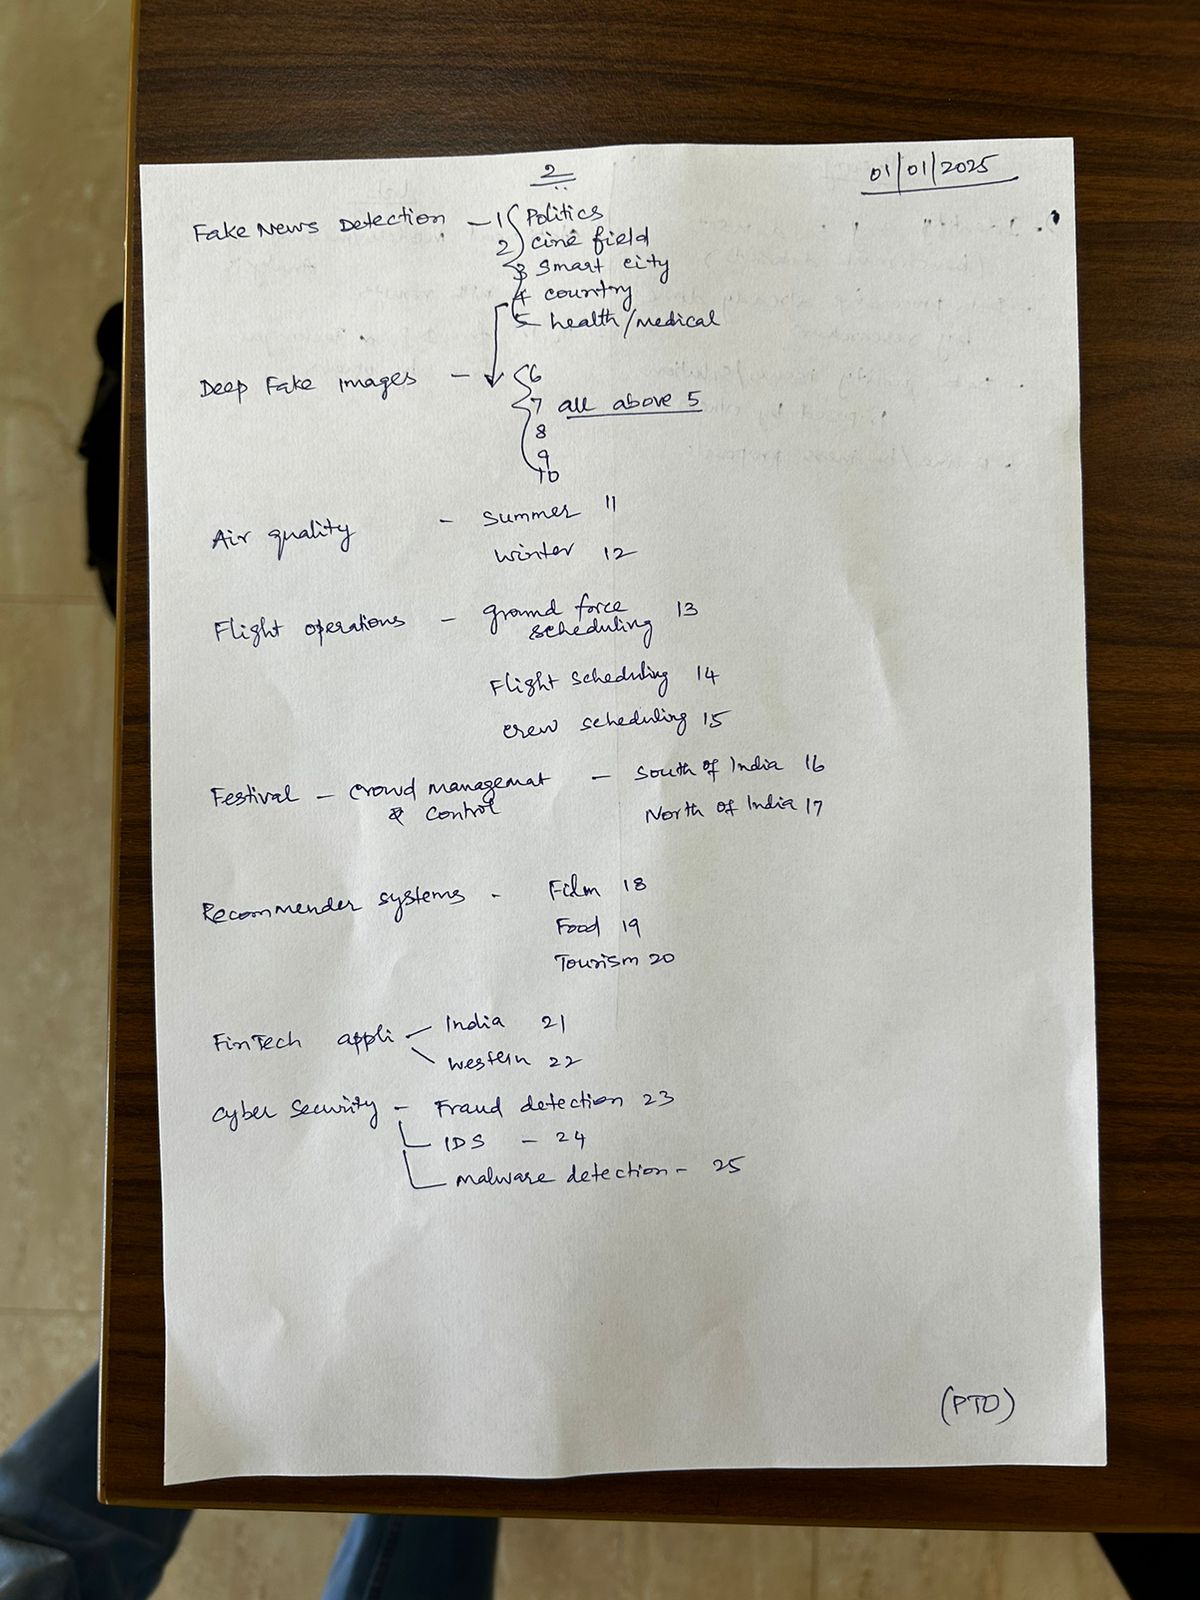 2
01/01/2025
Fake News Detection - 1 Politics
2 cine field
3 smart city
4 country
5 health/medical
Deep Fake Images - 6
7 all above 5
8
9
10
Air quality - Summer 11
Winter 12
Flight operations - ground force scheduling 13
Flight scheduling 14
crew scheduling 15
Festival - crowd managemat - South of India 16
& control North of India 17
Recommender systems - Film 18
Food 19
Tourism 20
FinTech appli - India 21
Western 22
Cyber Security - Fraud detection 23
IDS - 24
malware detection - 25
(PTO)